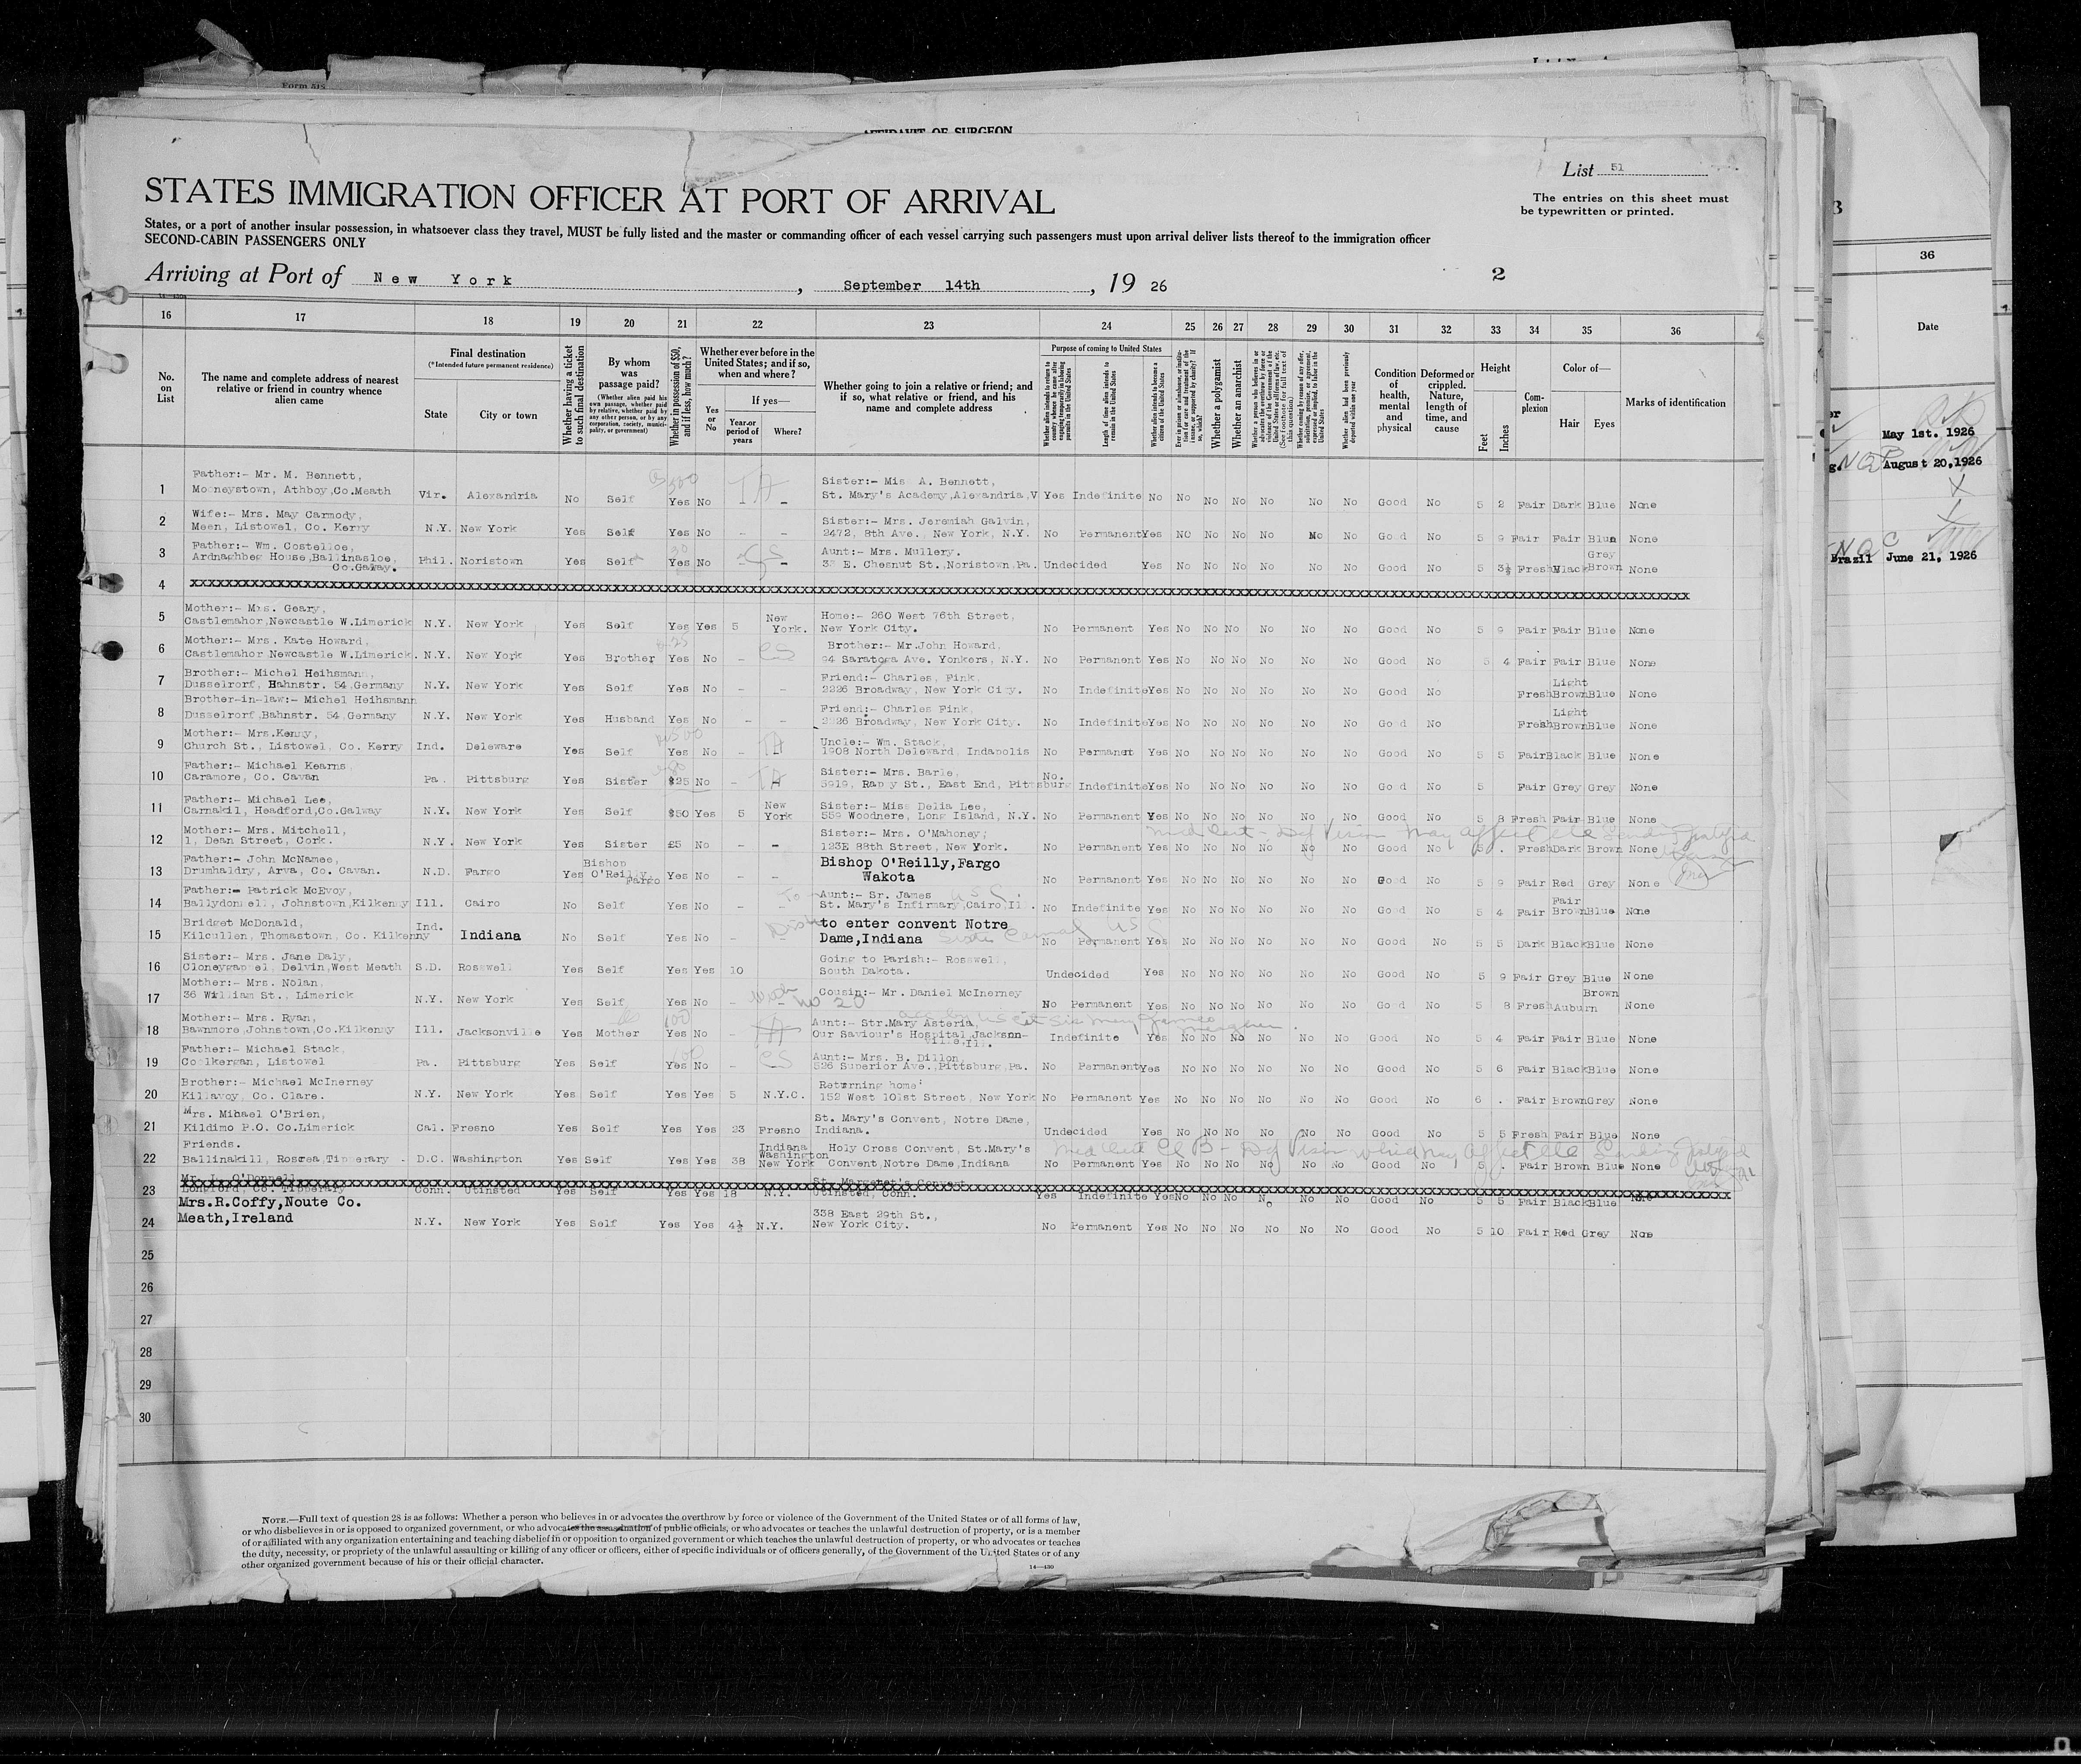 Form 51
AFFIDAVIT OF SURGEON
List 51
STATES IMMIGRATION OFFICER AT PORT OF ARRIVAL
The entries on this sheet must
be typewritten or printed.
States, or a port of another insular possession, in whatsoever class they travel, MUST be fully listed and the master or commanding officer of each vessel carrying such passengers must upon arrival deliver lists thereof to the immigration officer
SECOND-CABIN PASSENGERS ONLY
Arriving at Port of New York, September 14th, 19 26
2
16 17 18 19 20 21 22 23 24 25 26 27 28 29 30 31 32 33 34 35 36
No. on List
The name and complete address of nearest relative or friend in country whence alien came
Final destination (*Intended future permanent residence)
State
City or town
Whether having a ticket to such final destination
By whom was passage paid? (Whether alien paid his own passage, whether paid by relative, whether paid by any other person, or by any corporation, society, municipality, or government)
Whether in possession of $50, and if less, how much?
Whether ever before in the United States; and if so, when and where?
Yes or No
If yes—
Year or period of years
Where?
Whether going to join a relative or friend; and if so, what relative or friend, and his name and complete address
Purpose of coming to United States
Whether alien intends to return to country whence he came after engaging temporarily in laboring pursuits in the United States
Length of time alien intends to remain in the United States
Whether alien intends to become a citizen of the United States
Ever in prison or almshouse, or institution for care and treatment of the insane, or supported by charity? If so, which?
Whether a polygamist
Whether an anarchist
Whether a person who believes in or advocates the overthrow by force or violence of the Government of the United States or all forms of law, etc. (See footnote for full text of this question)
Whether coming by reason of any offer, solicitation, promise, or agreement, expressed or implied, to labor in the United States
Whether alien had been previously deported within one year
Condition of health, mental and physical
Deformed or crippled. Nature, length of time, and cause
Height
Feet
Inches
Complexion
Color of—
Hair
Eyes
Marks of identification
1 Father:- Mr. M. Bennett,
Mooneystown, Athboy,Co.Meath Vir. Alexandria No Self Yes No - Sister:- Mis A. Bennett,
St. Mary's Academy,Alexandria,V Yes Indefinite No No No No No No No Good No 5 2 Fair Dark Blue None
2 Wife:- Mrs. May Carmody,
Meen, Listowel, Co. Kerry N.Y. New York Yes Self Yes No - - Sister:- Mrs. Jeremiah Galvin,
2472, 8th Ave., New York, N.Y. No Permanent Yes No No No No No No Good No 5 9 Fair Fair Blue None
3 Father:- Wm. Costelloe,
Ardnaghbeg House,Ballinasloe,
Co.Galway. Phil. Noristown Yes Self Yes No - Aunt:- Mrs. Mullery.
E. Chesnut St.,Noristown,Pa. Undecided Yes No No No No No No Good No 5 3½ Fresh Black Grey Brown None
4 xxxxxxxxxxxxxxxxxxxxxxxxxxxxxxxxxxxxxxxx
5 Mother:- Mrs. Geary,
Castlemahor,Newcastle W.Limerick N.Y. New York Yes Self Yes Yes 5 New York. Home:- 260 West 76th Street,
New York City. No Permanent Yes No No No No No No Good No 5 9 Fair Fair Blue None
6 Mother:- Mrs. Kate Howard,
Castlemahor Newcastle W.Limerick. N.Y. New York Yes Brother Yes No - CS Brother:- Mr.John Howard,
94 Saratoga Ave. Yonkers, N.Y. No Permanent Yes No No No No No No Good No 5 4 Fair Fair Blue None
7 Brother:- Michel Heihsmann,
Dusselrorf, Hahnstr. 54,Germany N.Y. New York Yes Self Yes No - - Friend:- Charles, Fink,
2226 Broadway, New York City. No Indefinite Yes No No No No No No Good No Fresh Light Brown Blue None
8 Brother-in-law:- Michel Heihsmann
Dusselrorf,Bahnstr. 54,Germany N.Y. New York Yes Husband Yes No - - Friend:- Charles Fink,
2226 Broadway, New York City. No Indefinite Yes No No No No No No Good No Fresh Light Brown Blue None
9 Mother:- Mrs.Kenny,
Church St., Listowel, Co. Kerry Ind. Deleware Yes Self Yes No - TA Uncle:- Wm. Stack,
1908 North Deleward, Indapolis No Permanet Yes No No No No No No Good No 5 5 Fair Black Blue None
10 Father:- Michael Kearns,
Caramore, Co. Cavan Pa. Pittsburg Yes Sister $25 No - TA Sister:- Mrs. Barle,
5919, St., East End, Pittsburg No. Indefinite Yes No No No No No No Good No 5 Fair Grey Grey None
11 Father:- Michael Lee,
Carnakil, Headford,Co.Galway N.Y. New York Yes Self $50 Yes 5 New York Sister:- Miss Delia Lee,
559 Woodnere, Long Island, N.Y. No Permanent Yes No No No No No No Good No 5 8 Fresh Fair Blue None
12 Mother:- Mrs. Mitchell,
1, Dean Street, Cork. N.Y. New York Yes Sister £5 No - - Sister:- Mrs. O'Mahoney;
123E 88th Street, New York. No Permanent Yes No No No No No No Good No 5 . Fresh Dark Brown None
Med Cert - Def Vision may affect
13 Father:- John McNamee,
Drumhaldry, Arva, Co. Cavan. N.D. Fargo Yes Bishop O'Reilly, Fargo Yes No - - Bishop O'Reilly,Fargo
Wakota No Permanent Yes No No No No No No Good No 5 9 Fair Red Grey None
14 Father:- Patrick McEvoy,
Ballydonnell, Johnstown,Kilkenny Ill. Cairo No Self Yes No - Aunt:- Sr. James
St. Mary's Infirmary,Cairo,Ill. No Indefinite Yes No No No No No No Good No 5 4 Fair Fair Brown Blue None
15 Bridget McDonald,
Kilcullen, Thomastown, Co. Kilkenny Ind. Indiana No Self Yes No - to enter convent Notre
Dame,Indiana No Permanent Yes No No No No No No Good No 5 5 Dark Black Blue None
16 Sister:- Mrs. Jane Daly,
Cloneygannel, Delvin,West Meath S.D. Roswell Yes Self Yes Yes 10 Going to Parish:- Rosswell,
South Dakota. Undecided Yes No No No No No No Good No 5 9 Fair Grey Blue None
17 Mother:- Mrs. Nolan,
36 William St., Limerick N.Y. New York Yes Self Yes No - with no 20 Cousin:- Mr. Daniel McInerney
No Permanent Yes No No No No No No Good No 5 8 Fresh Auburn Brown None
18 Mother:- Mrs. Ryan,
Bawnmore,Johnstown,Co.Kilkenny Ill. Jacksonville Yes Mother Yes No - TA Aunt:- Str.Mary Asteria,
Our Saviour's Hospital,Jacksonville,Ill. Indefinite Yes No No No No No No Good No 5 4 Fair Fair Blue None
19 Father:- Michael Stack,
Coolkergan, Listowel Pa. Pittsburg Yes Self Yes No - CS Aunt:- Mrs. B. Dillon,
526 Superior Ave.,Pittsburg,Pa. No Permanent Yes No No No No No No Good No 5 6 Fair Black Blue None
20 Brother:- Michael McInerney
Killavoy, Co. Clare. N.Y. New York Yes Self Yes Yes 5 N.Y.C. Returning home:
152 West 101st Street, New York No Permanent Yes No No No No No No Good No 6 . Fair Brown Grey None
21 Mrs. Mihael O'Brien,
Kildimo P.O. Co.Limerick Cal. Fresno Yes Self Yes Yes 23 Fresno St. Mary's Convent, Notre Dame,
Indiana. Undecided Yes No No No No No No Good No 5 5 Fresh Fair Blue None
22 Friends.
Ballinakill, Roscrea,Tipperary - D.C. Washington Yes Self Yes Yes 38 Indiana Washington New York Holy Cross Convent, St.Mary's
Convent,Notre Dame,Indiana No Permanent Yes No No No No No No Good No 5 . Fair Brown Blue None
Med Cert Cl B - Def Vision which may affect
23 Mr. L. O'Donnell,
Longford, Co. Tipperary Conn. Utinsted Yes Self Yes Yes 18 N.Y. St. Margaret's Convent
Utinsted, Conn. Yes Indefinite Yes No No No No No No Good No 5 5 Fair Black Blue None
24 Mrs.R.Coffy,Noute Co.
Meath,Ireland N.Y. New York Yes Self Yes Yes 4½ N.Y. 338 East 29th St.,
New York City. No Permanent Yes No No No No No No Good No 5 10 Fair Red Grey None
25
26
27
28
29
30
NOTE.—Full text of question 28 is as follows: Whether a person who believes in or advocates the overthrow by force or violence of the Government of the United States or of all forms of law,
or who disbelieves in or is opposed to organized government, or who advocates the assassination of public officials, or who advocates or teaches the unlawful destruction of property, or is a member
of or affiliated with any organization entertaining and teaching disbelief in or opposition to organized government or which teaches the unlawful destruction of property, or who advocates or teaches
the duty, necessity, or propriety of the unlawful assaulting or killing of any officer or officers, either of specific individuals or of officers generally, of the Government of the United States or of any
other organized government because of his or their official character.
14—430
36
Date
May 1st. 1926
August 20,1926
Brazil June 21, 1926